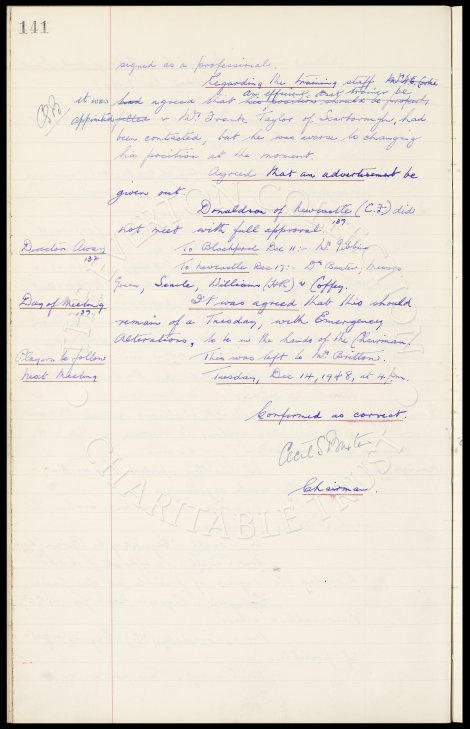 141
signed as a professional.
Regarding the training staff Mr. H.E. Cooke
an efficient trainer be
it was had agreed that his position should be properly
appointed & Mr Frank Taylor of Scarborough, had
CSB
been contacted, but he was averse to changing
his position at the moment.
Agreed that an advertisement be
given out.
Donaldson of Newcastle (C.F.) did
not meet with full approval. 137.
Directors Away
137
To Blackpool Dec 11:- Mr Gibbins
To Newcastle Dec 17:- Dr Baxter, Messrs
Green, Searle, Williams (HR) & Coffey.
Day of Meeting
137.
It was agreed that this should
remain of a Tuesday, with Emergency
Alterations, to be in the hands of the Chairman.
Players to follow
This was left to Mr. Britton.
Next Meeting
Tuesday, Dec 14, 1948, at 4 pm.
Confirmed as correct.
Cecil S Baxter
Chairman.
EVERTON COLLECTION
CHARITABLE TRUST